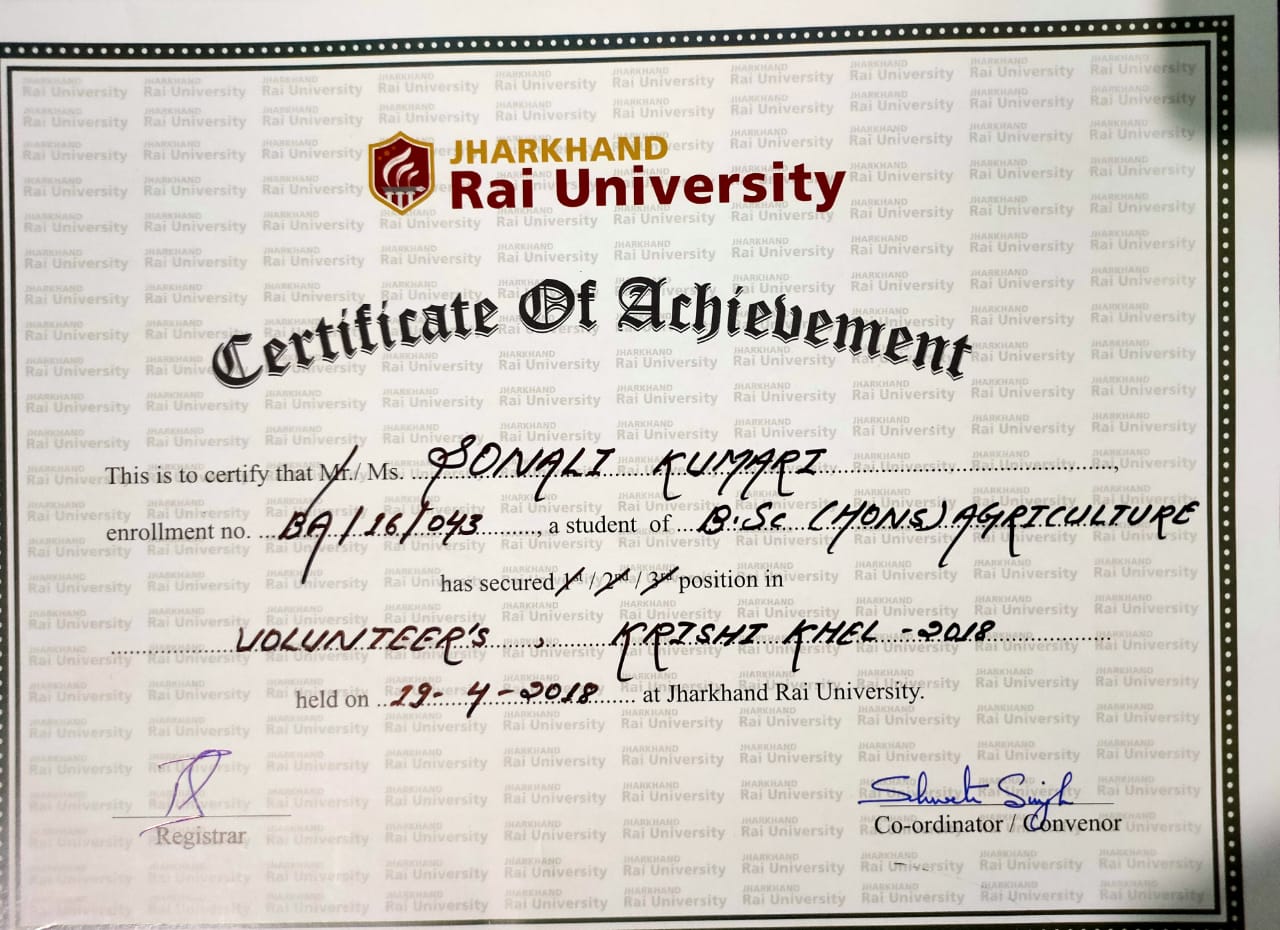 JHARKHAND
Rai University
Certificate Of Achievement
This is to certify that Mr./ Ms. SONALI KUMARI
enrollment no. BA/16/043, a student of B.Sc (HONS) AGRICULTURE
has secured 1st / 2nd / 3rd position in
VOLUNTEER'S, KRISHI KHEL - 2018
held on 19-4-2018 at Jharkhand Rai University.
Shweta Singh
Registrar
Co-ordinator / Convenor